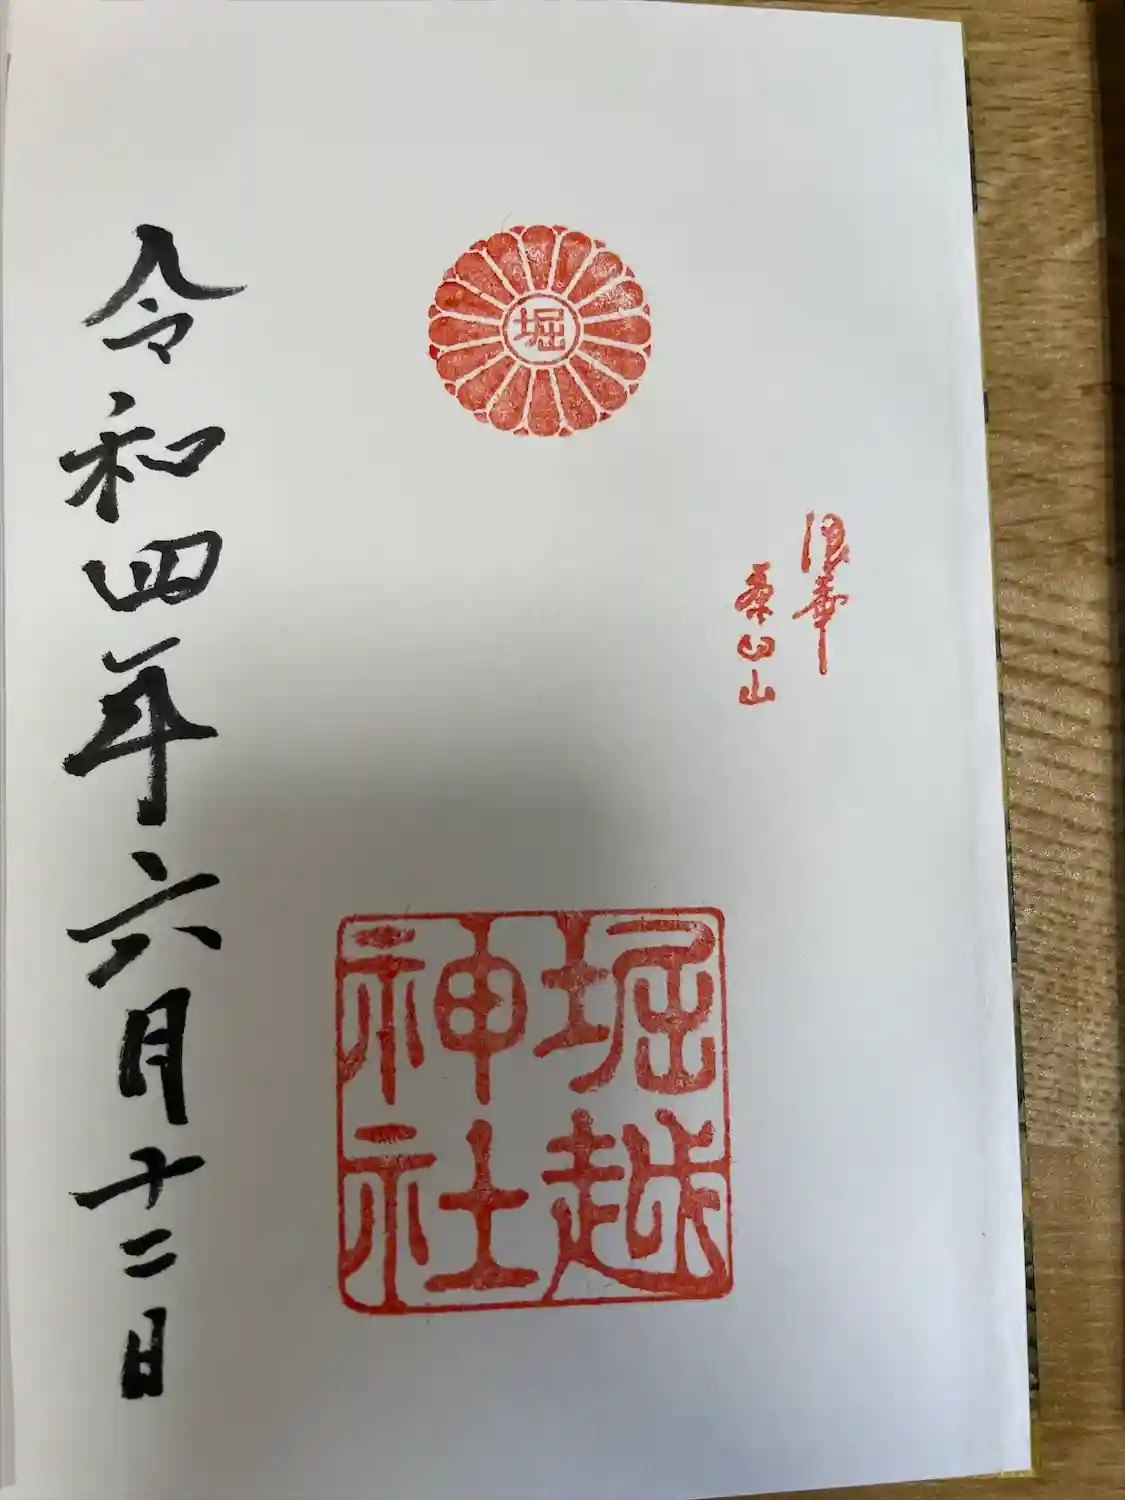 浪華
茶臼山
堀
堀越
神社
令和四年六月十二日